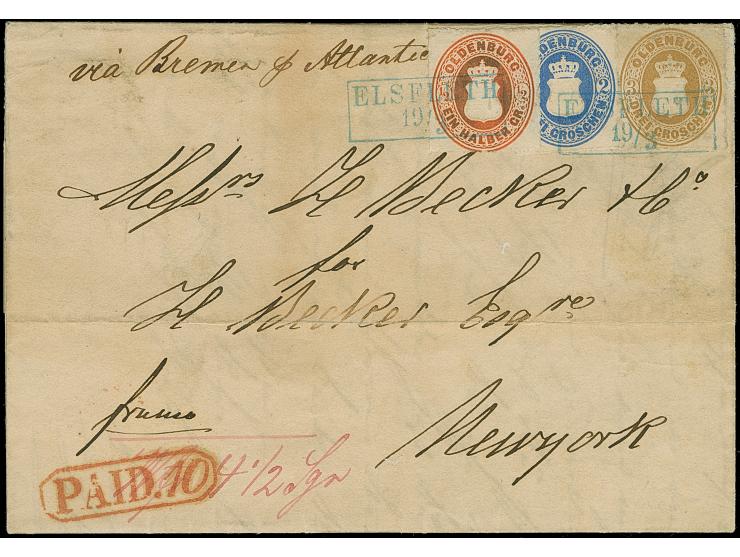 via Bremen p Atlantic
OLDENBURG
EIN HALBER GR.
OLDENBURG
2
GROSCHEN
OLDENBURG
3
DREI GROSCHEN
ELSFLETH
19/3
19/3
Messrs H Becker & Co
for
H Becker Esqre
franco
Newyork
PAID.10
4 1/2 Sgr